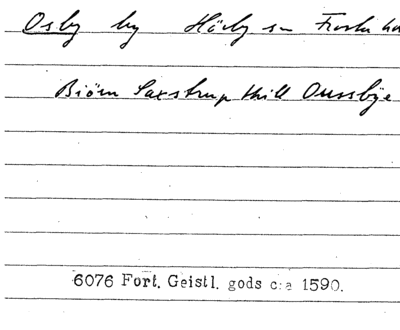 Osby by Hörby sn Frosta
Biörn Saxstrup thill Oussbÿe
6076 Fort. Geistl. gods c:a 1590.